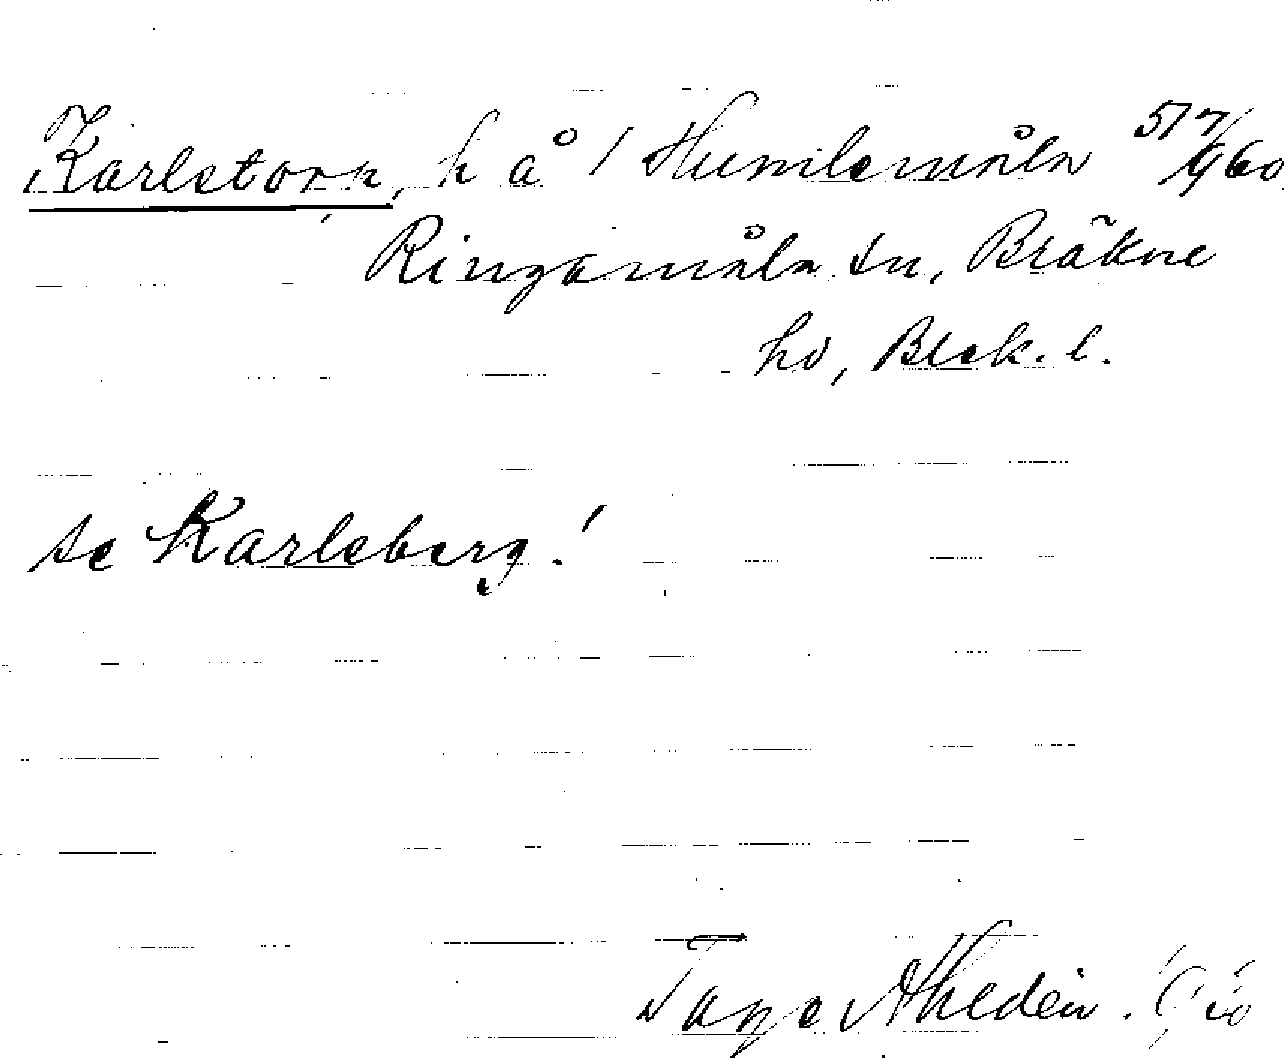 Karlstorp, h å 1 Humlemåla 51 7/960
Ringamåla sn, Bräkne
hd, Blek. l.
se Karleberg!
Tage Ahldén.